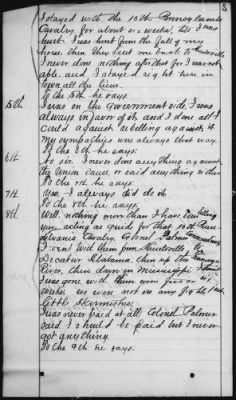 I stayed with the 15th Pennsylvania
Cavalry for about six weeks, till I was
hurt. I was hurt from the fall of my
horse. then they sent me back to Huntsville
I never done nothing after that for I was not
able. and I stayed right here in
town all the time.
To the 5th he says.
5th. I was on the Government side, I was
always in favor of it and I done all I
could against rebelling against it
My sympathies were always that way.
To the 6th he says.
6th. No sir. I never done anything against
the Union cause or said anything either
To the 7th he says.
7th. Yes, I always did do it.
To the 8th he says.
8th. Well nothing more than I have been telling
you. acting as guide for that 15th Penn-
sylvania Cavalry, Colonel Palmer
I went with them from Huntsville to
Decatur Alabama then up the
River, then down in Mississippi I
was gone with them some five or six
weeks. we were not in any fight but
little Skirmishes.
I was never paid at all. Colonel Palmer
said I should be paid but I never
got anything.
To the 9th he says.